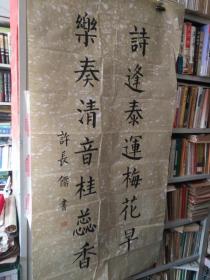 詩逢泰運梅花早
樂奏清音桂蕊香
許長儒書